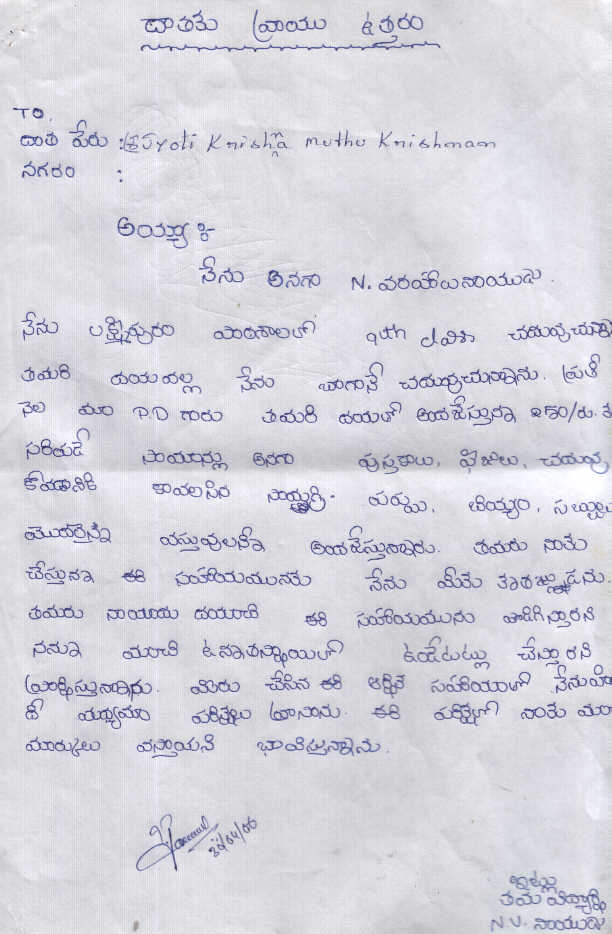 దాతకు వ్రాయు ఉత్తరం
TO.
దాత పేరు : Jyoti Krishna muthu Krishnan
నగరం :
అయ్యా :-
నేను అనగా N. వరహాలనాయుడు.
నేను లక్ష్మీపురం పాఠశాలలో 9th class చదువుచున్నా
తమరి దయవల్ల నేను బాగానే చదువుచున్నాను. ప్రతి
నెల మా P.D గారు తమరి దయతో అందజేస్తున్నా 250/రు.
సరిపడే సామాన్లు అనగా పుస్తకాలు, ఫీజులు, చదువు
కోవడానికి కావలసిన సామగ్రి. పప్పు, బియ్యం, సబ్బులు
మొదలైన వస్తువులన్నీ అందజేస్తున్నారు. తమరు నాకు
చేస్తున్నా ఈ సహాయమునకు నేను మీకు కృతజ్ఞుడను.
తమరు నాయందు దయఉంచి ఈ సహాయమును
నన్ను మంచి ఉన్నతస్థాయిలో ఉండేటట్లు చేస్తారని
ప్రార్థిస్తున్నాను. మీరు చేసిన ఈ ఆర్థిక సహాయంతో నేను
పరీక్షలు వ్రాసాను. ఈ పరీక్షల్లో నాకు మంచి
మార్కులు వస్తాయని భావిస్తున్నాను.
ఇట్లు
తమ విద్యార్థి
N.V. నాయుడు